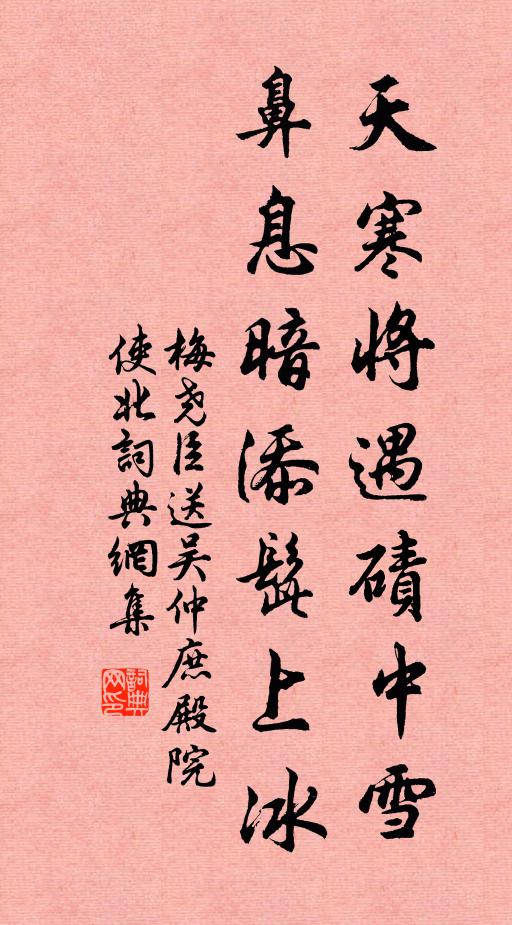 天寒将遇磧中雪
鼻息暗添髭上冰
梅尧臣送吴仲庶殿院
使北詞典網集
詞典网印